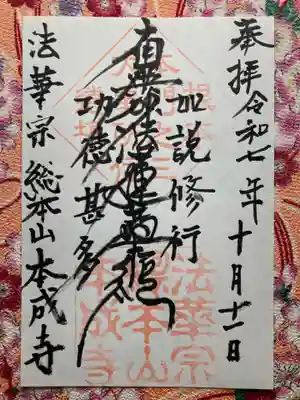 奉拝令和七年十月十一日
如説修行
南無妙法蓮華経
功徳甚多
法華宗総本山本成寺
法華宗
総本山
本成寺